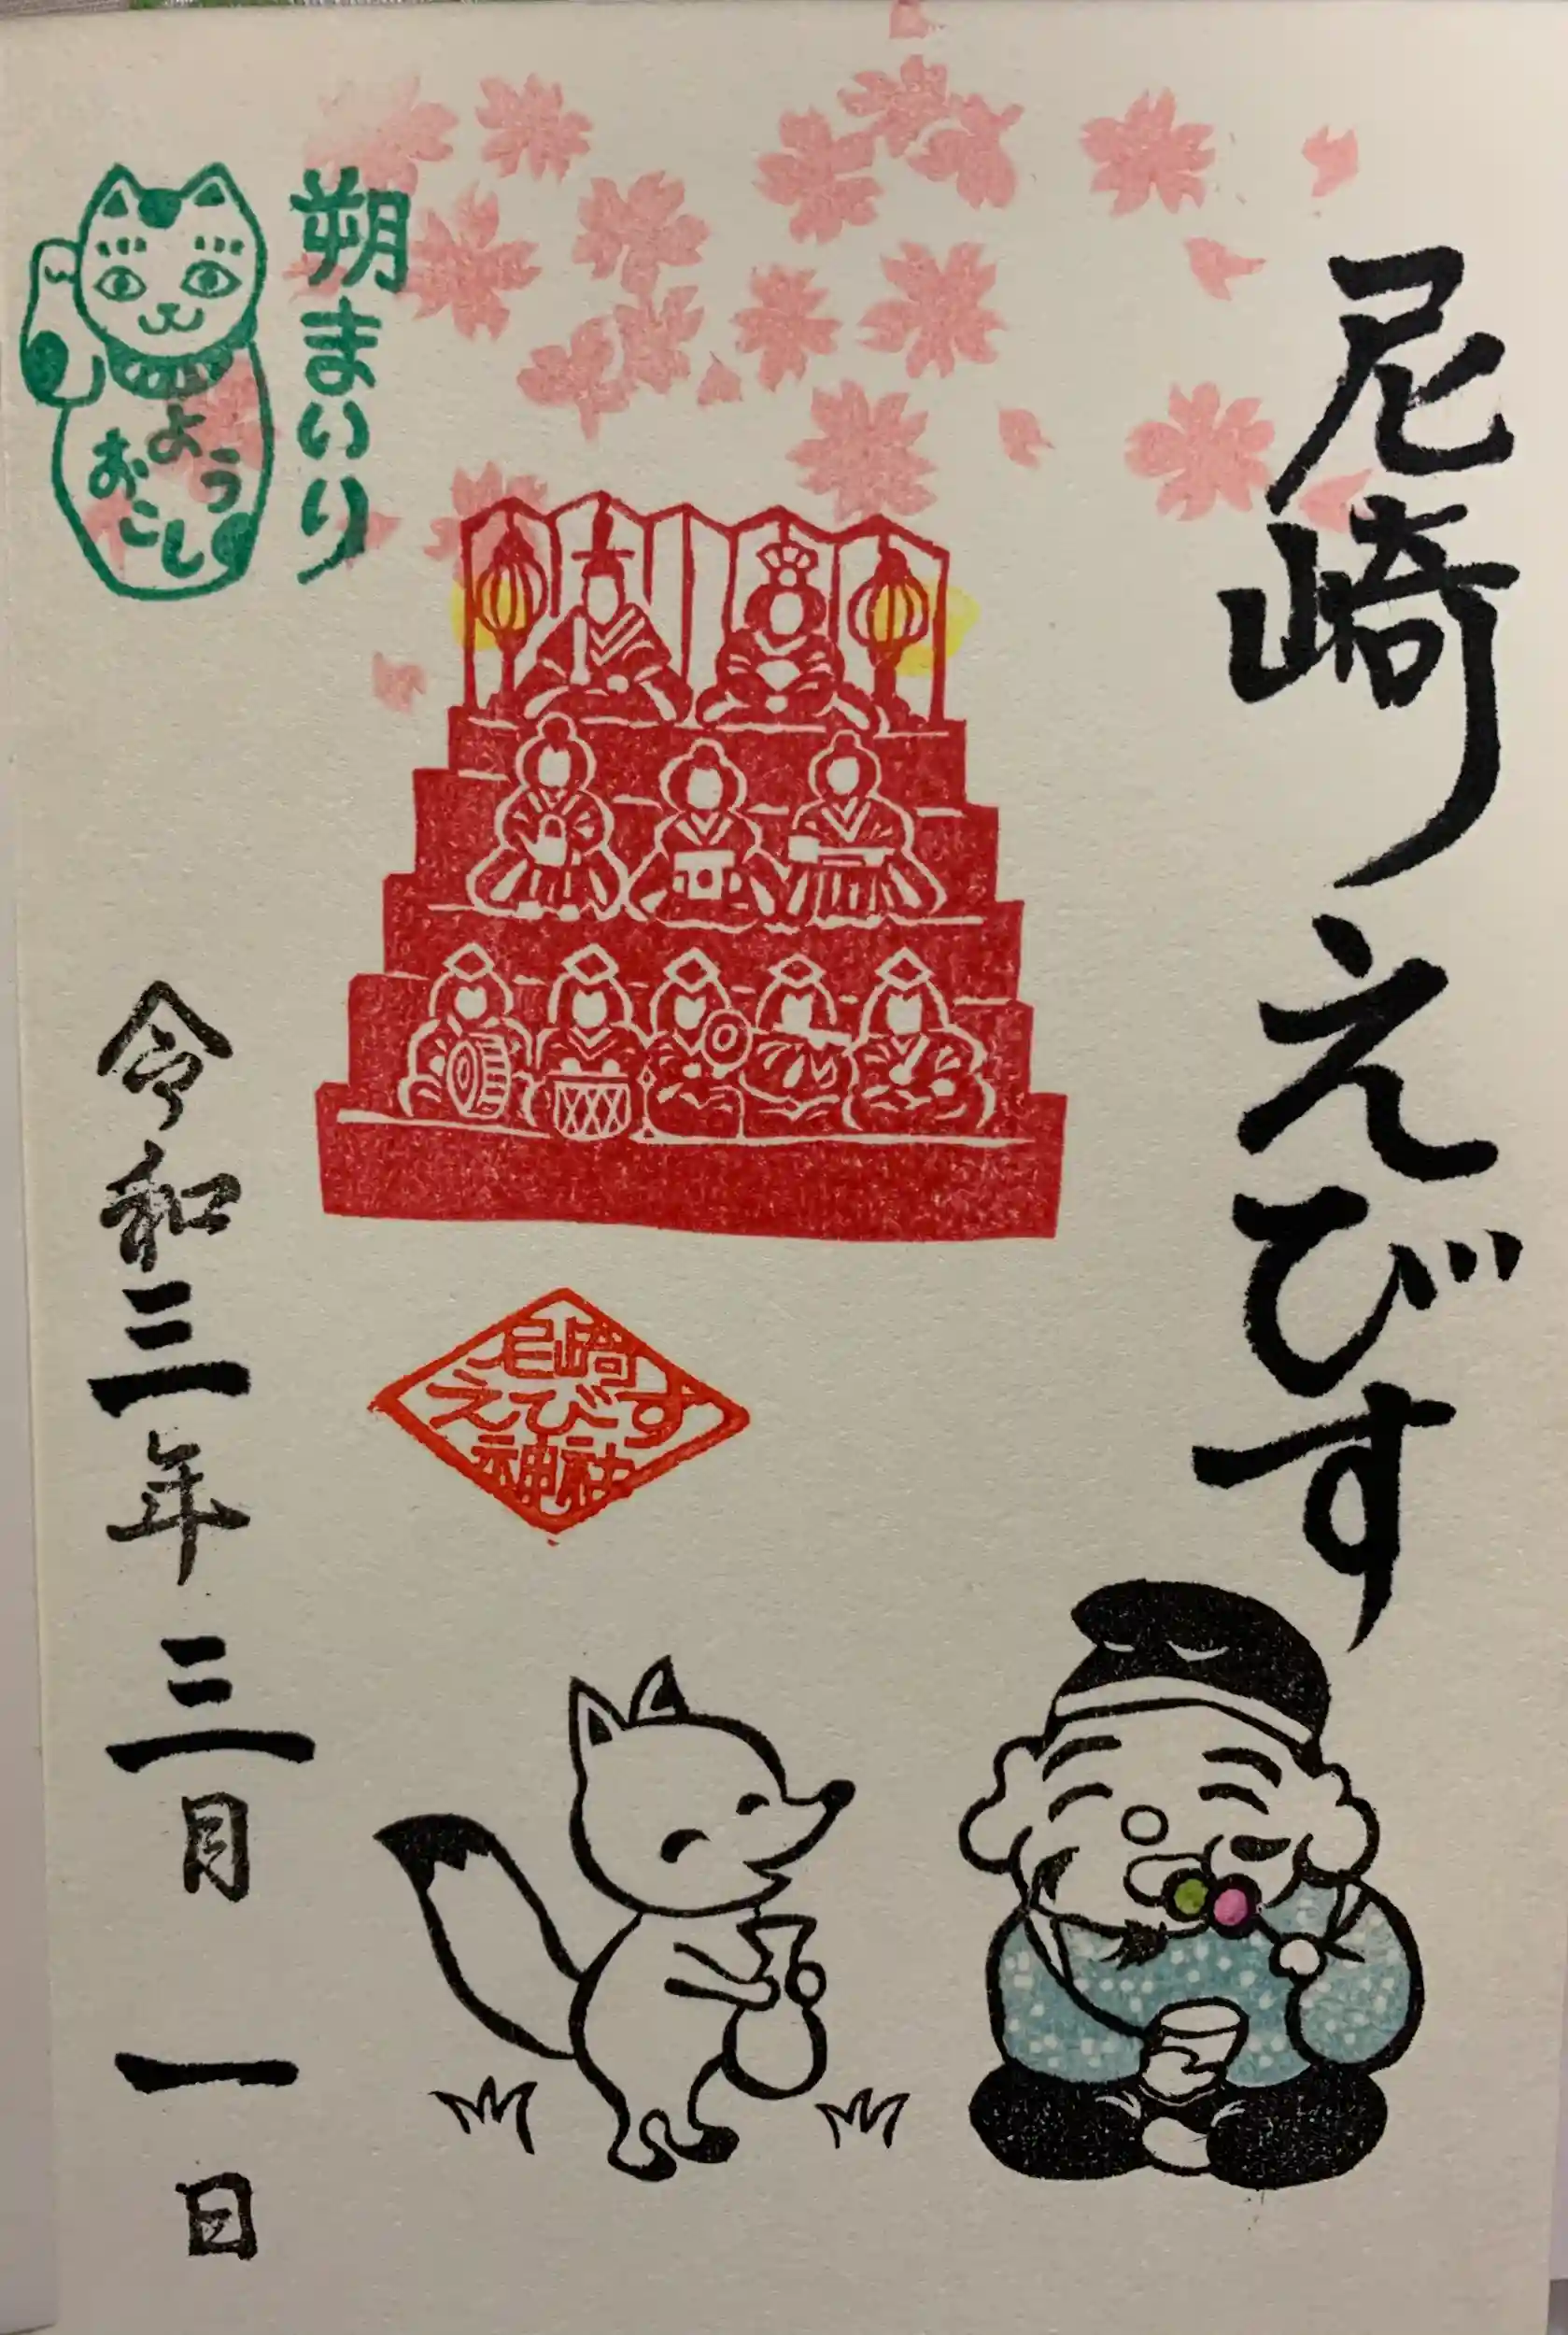 尼崎えびす
朔まいり
ようおこし
尼崎
えびす
神社
令和三年三月一日